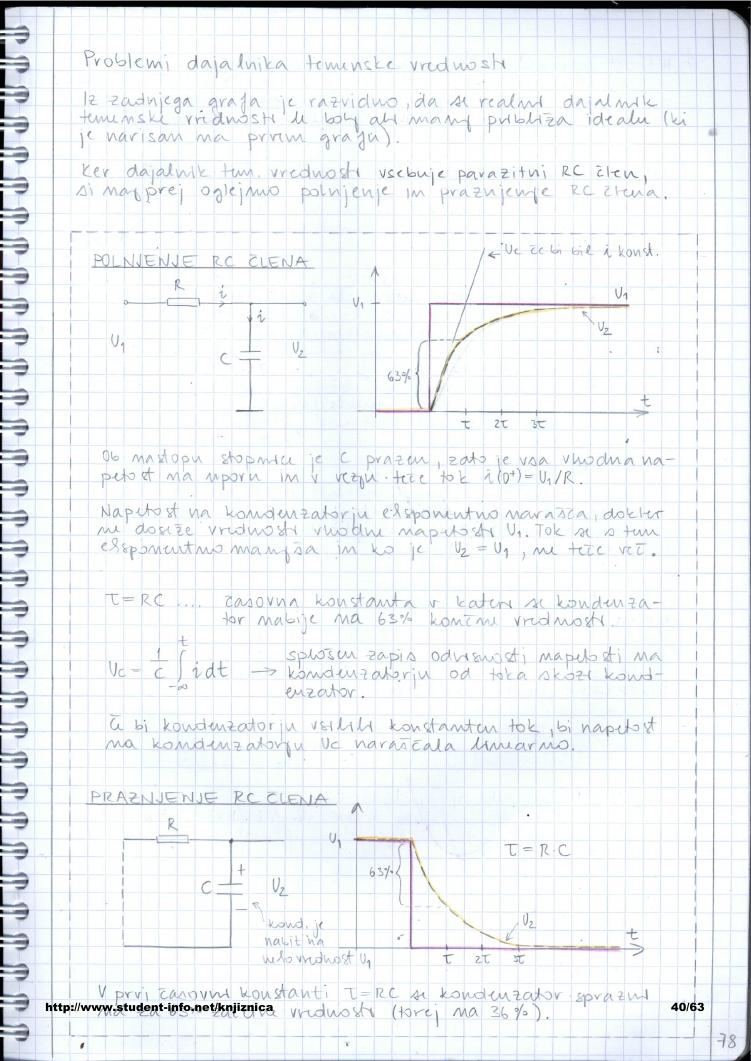 Problemi dajalnika temenske vrednosti
Iz zadnjega grafa je razvidno, da se realni dajalnik
temenske vrednosti le bolj ali manj približa idealu (ki
je narisan na prvem grafu).
Ker dajalnik tem. vrednosti vsebuje parazitni RC člen,
si najprej oglejmo polnjenje in praznjenje RC člena.
POLNJENJE RC ČLENA
R
i
i
U1
C
U2
Uc če bi bil i konst.
U1
U1
U2
63%
t
τ 2τ 3τ
Ob nastopu stopnice je C prazen, zato je vsa vhodna na-
petost na uporu in v vezju teče tok i(0+) = U1/R.
Napetost na kondenzatorju eksponentno narašča, dokler
ne doseže vrednosti vhodne napetosti U1. Tok se s tem
eksponentno manjša in ko je U2 = U1, ne teče več.
τ = RC .... časovna konstanta v kateri se kondenza-
tor nabije na 63% končne vrednosti.
Uc = 1/C ∫ i dt → splošen zapis odvisnosti napetosti na
t
-∞
kondenzatorju od toka skozi kond-
enzator.
Če bi kondenzatorju vsilili konstanten tok, bi napetost
na kondenzatorju Uc naraščala linearno.
PRAZNJENJE RC ČLENA
R
C
+
-
U2
kond. je
nabit na
vrednost U1
U1
63%
τ = R·C
U2
t
τ 2τ 3τ
V prvi časovni konstanti τ = RC se kondenzator sprazni
na za vrednosti (torej na 36%).
http://www.student-info.net/knjiznica
40/63
78